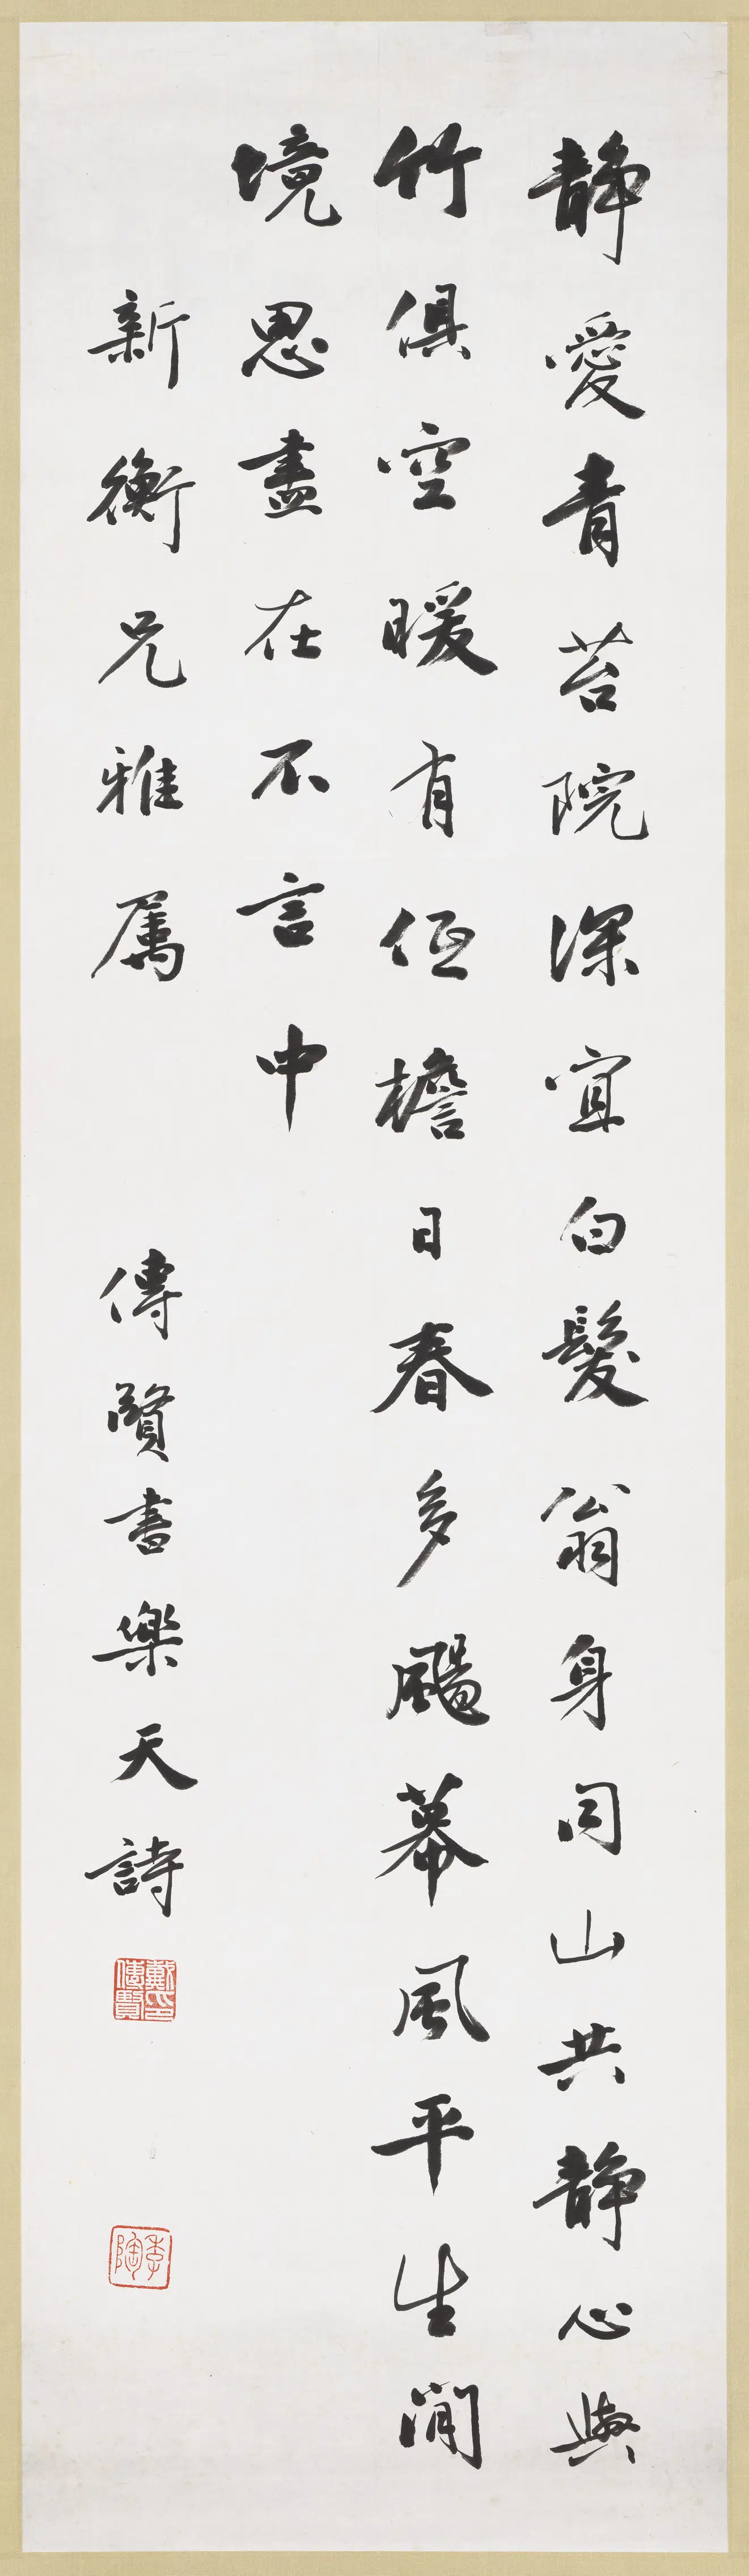 靜愛青苔院深宜白髮翁身同山共靜心與
竹俱空暖有低檐日春多颺幕風平生閒
境思盡在不言中
新衡兄雅属
傳賢書樂天詩
戴傳賢印
季陶